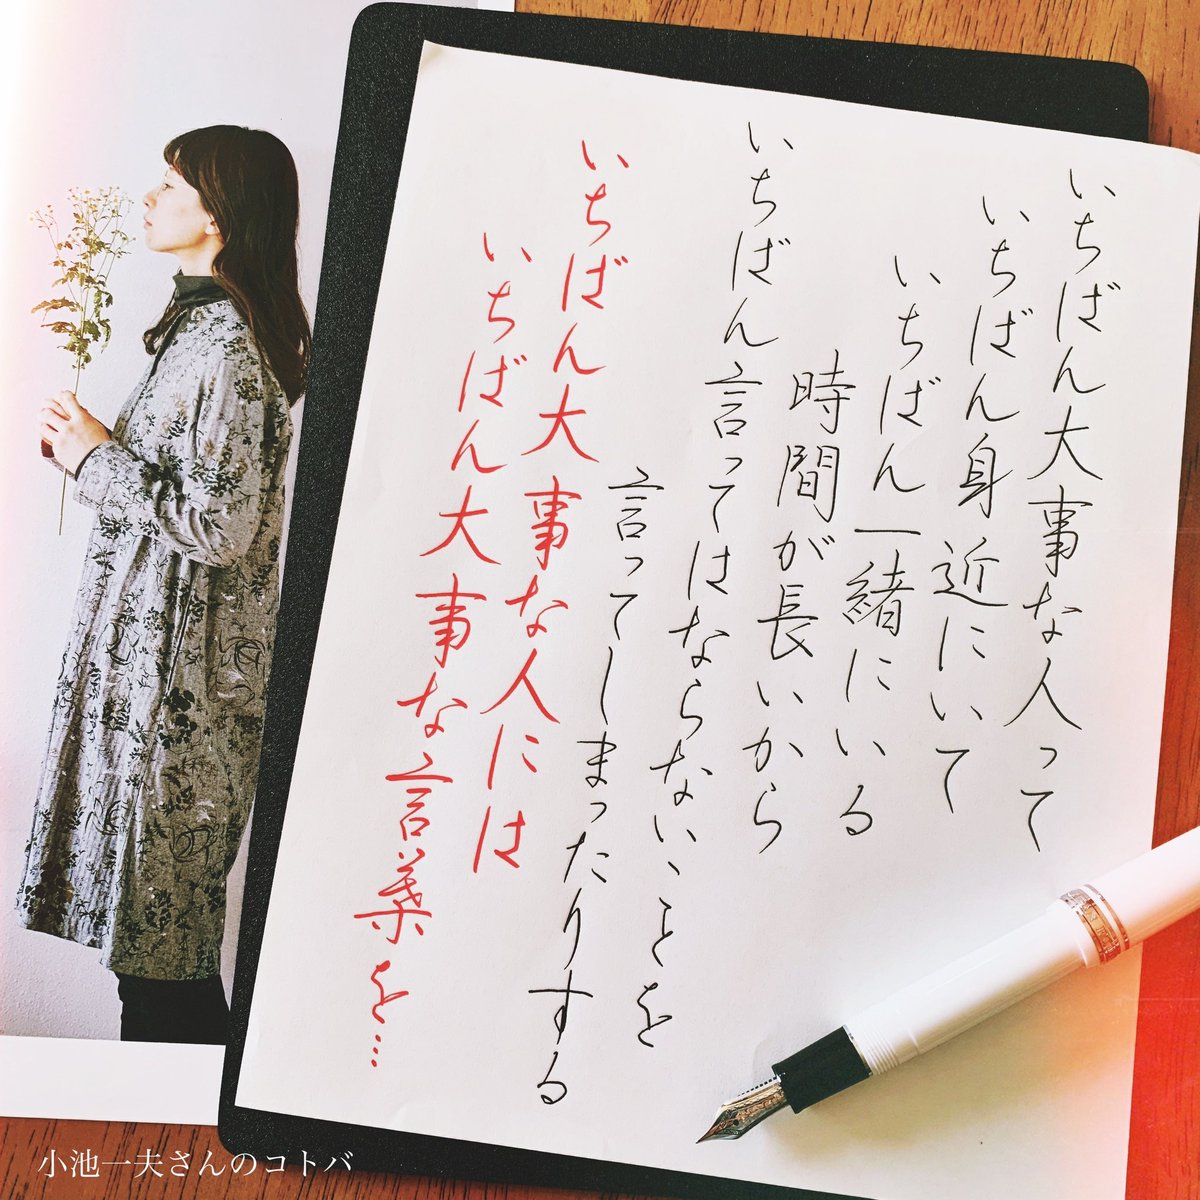 いちばん大事な人って
いちばん身近にいて
いちばん一緒にいる
時間が長いから
いちばん言ってはならないことを
言ってしまったりする
いちばん大事な人には
いちばん大事な言葉を…
小池一夫さんのコトバ